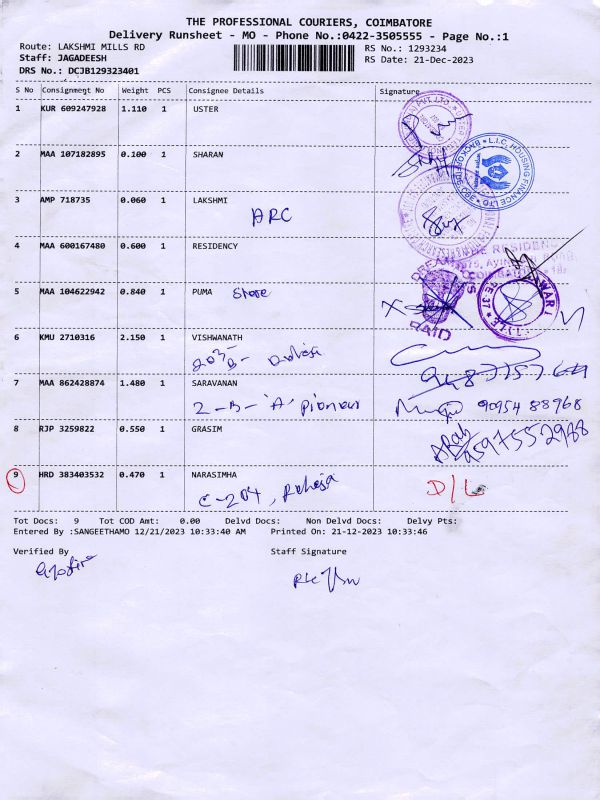 THE PROFESSIONAL COURIERS, COIMBATORE
Delivery Runsheet - MO - Phone No.:0422-3505555 - Page No.:1
Route: LAKSHMI MILLS RD
RS No.: 1293234
Staff: JAGADEESH
RS Date: 21-Dec-2023
DRS No.: DCJB129323401
S No Consignment No Weight PCS Consignee Details Signature
1 KUR 609247928 1.110 1 USTER
2 MAA 107182895 0.100 1 SHARAN
L.I.C. HOUSING FINANCE LTD
BACK OFFICE
3 AMP 718735 0.060 1 LAKSHMI
ARC
4 MAA 600167480 0.600 1 RESIDENCY
THE RESIDENC
5 MAA 104622942 0.840 1 PUMA Store
RAID
6 KMU 2710316 2.150 1 VISHWANATH
7 MAA 862428874 1.480 1 SARAVANAN
2-B-'A' Pioneer
90954 88968
8 RJP 3259822 0.550 1 GRASIM
9597552988
9 HRD 383403532 0.470 1 NARASIMHA
C-204, Raheja
D/L
Tot Docs: 9 Tot COD Amt: 0.00 Delvd Docs: Non Delvd Docs: Delvy Pts:
Entered By :SANGEETHAMO 12/21/2023 10:33:40 AM Printed On: 21-12-2023 10:33:46
Verified By Staff Signature